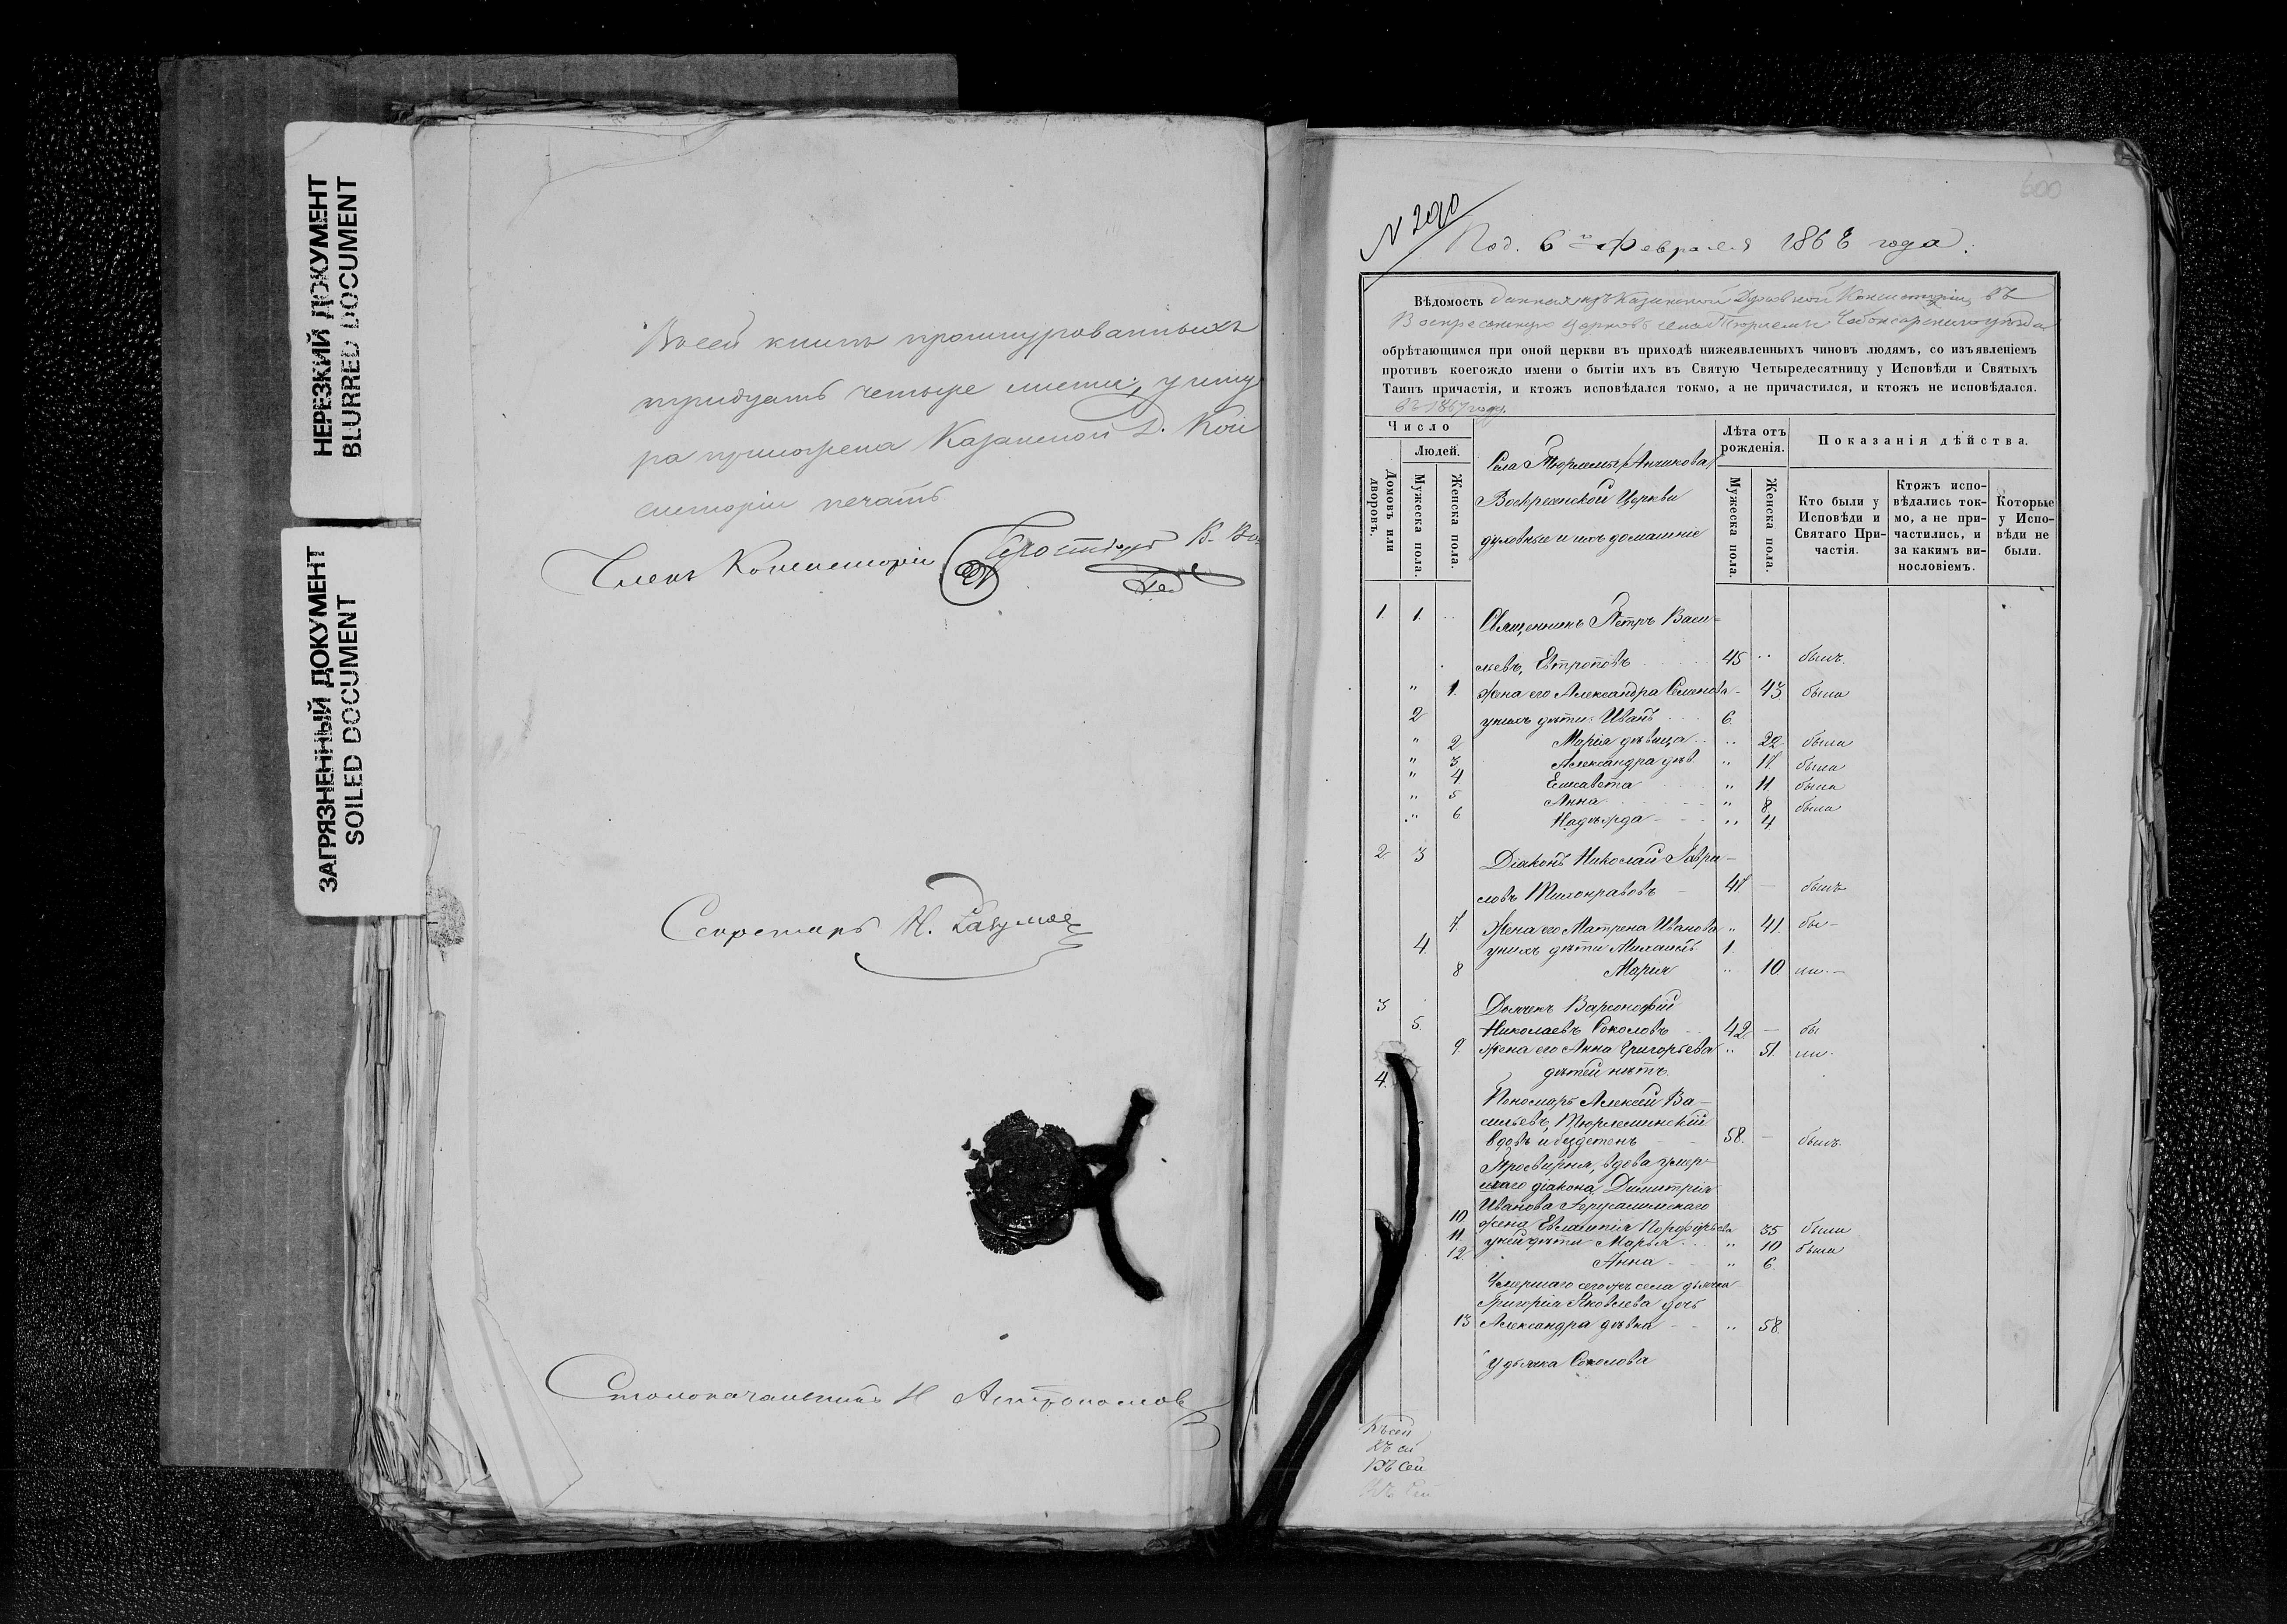 НЕРЕЗКИЙ ДОКУМЕНТ
BLURRED DOCUMENT
ЗАГРЯЗНЕННЫЙ ДОКУМЕНТ
SOILED DOCUMENT
Въ сей книгѣ прошнурованныхъ
тридцать четыре листа, у шну
ра приложена Казанской Д. Кон
систоріи печать.
Членъ Консисторіи Протоіерей В.
Секретарь Н. Разумов
Столоначальникъ Н Астрономов
600
N 290
Под. 6го Февраля 1868 года.
Вѣдомость данная изъ Казанской Духовной Консисторіи въ
Воскресенскую церковь села Тюрлемы Чебоксарскаго уѣзда
обрѣтающимся при оной церкви въ приходѣ нижеявленныхъ чиновъ людямъ, со изъявленіемъ
противъ коегождо имени о бытіи ихъ въ Святую Четыредесятницу у Исповѣди и Святыхъ
Таинъ причастія, и ктожъ исповѣдался токмо, а не причастился, и ктожъ не исповѣдался.
въ 1867 году.
Число
Людей.
Домовъ или дворовъ.
Мужеска пола.
Женска пола.
Села Тюрлемы (Анчикова)
Воскресенской Церкви
духовные и ихъ домашніе
Лѣта отъ рожденія.
Мужеска пола.
Женска пола.
Показанія дѣйства.
Кто были у Исповѣди и Святаго Причастія.
Ктожъ исповѣдались токмо, а не причастились, и за какимъ винословіемъ.
Которые у Исповѣди не были.
1. 1. Священникъ Петръ Васи-
льевъ, Евтроповъ 45 былъ.
" 1. Жена его Александра Семенова - 43 была
2 у нихъ дѣти: Иванъ 6.
" 2 Марія дѣвица 22 была
" 3 Александра дѣв. " 17. была
" 4 Елисавета " 11 была
" 5 Анна " 8. была
" 6 Надежда " 4
2 3 Діаконъ Николай Гаври-
ловъ Тихонравовъ 47 - былъ
7. Жена его Матрена Иванова " 41. бы-
4. у нихъ дѣти Михаилъ. 1.
8 Марія " 10 ли. -
3 Дьячекъ Варсонофій
5. Николаевъ Соколовъ 42 - бы
9. Жена его Анна Григорьева " 51. ли.
дѣтей нѣтъ.
4. Пономарь Алексей Ва-
сильевъ, Тюрлеминскій
вдовъ и бездетенъ 58. - былъ.
Просвирня, вдова умер-
шаго діакона Димитрія
Иванова Іерусалимскаго
10 жена Евлампія Порфирьева 35 была
11. у ней дѣти Марья " 10 была
12. Анна " 6.
Умершаго сего жъ села дьячка
Григорія Яковлева дочь
13 Александра дѣвка " 58.
У дьячка Соколова
Къ сей
Къ сей
Къ сей